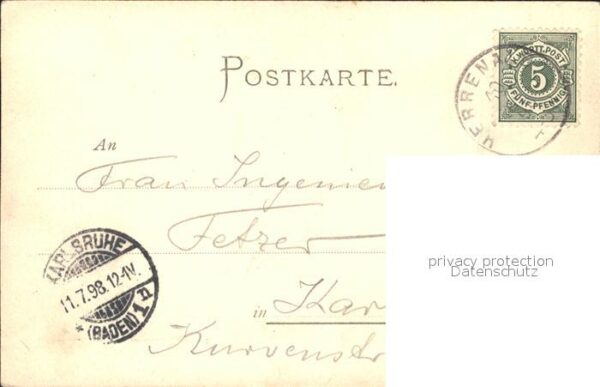 K.WÜRTT.POST
5
FÜNF PFENNIG
HERRENA
POSTKARTE.
An
Frau Ingenieu
Fetzer
in Kar
Kurvenstr
KARLSRUHE
11.7.98.12-1V.
* (BADEN) 1n
privacy protection
Datenschutz